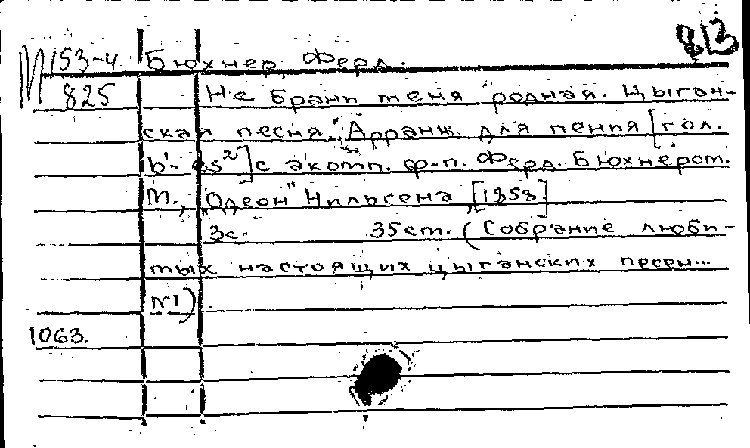 813
М 153-4 Бюхнер, Ферд.
825 Не брани меня родная. Цыган-
ская песня. Арранж. для пения [гол.
b'- es²] с акомп. ф-п. Ферд. Бюхнером.
М., "Одеон" Нильсена, [1858]
3с. 35ст. (Собрание люби-
мых настоящих цыганских песен...
№1).
1063.